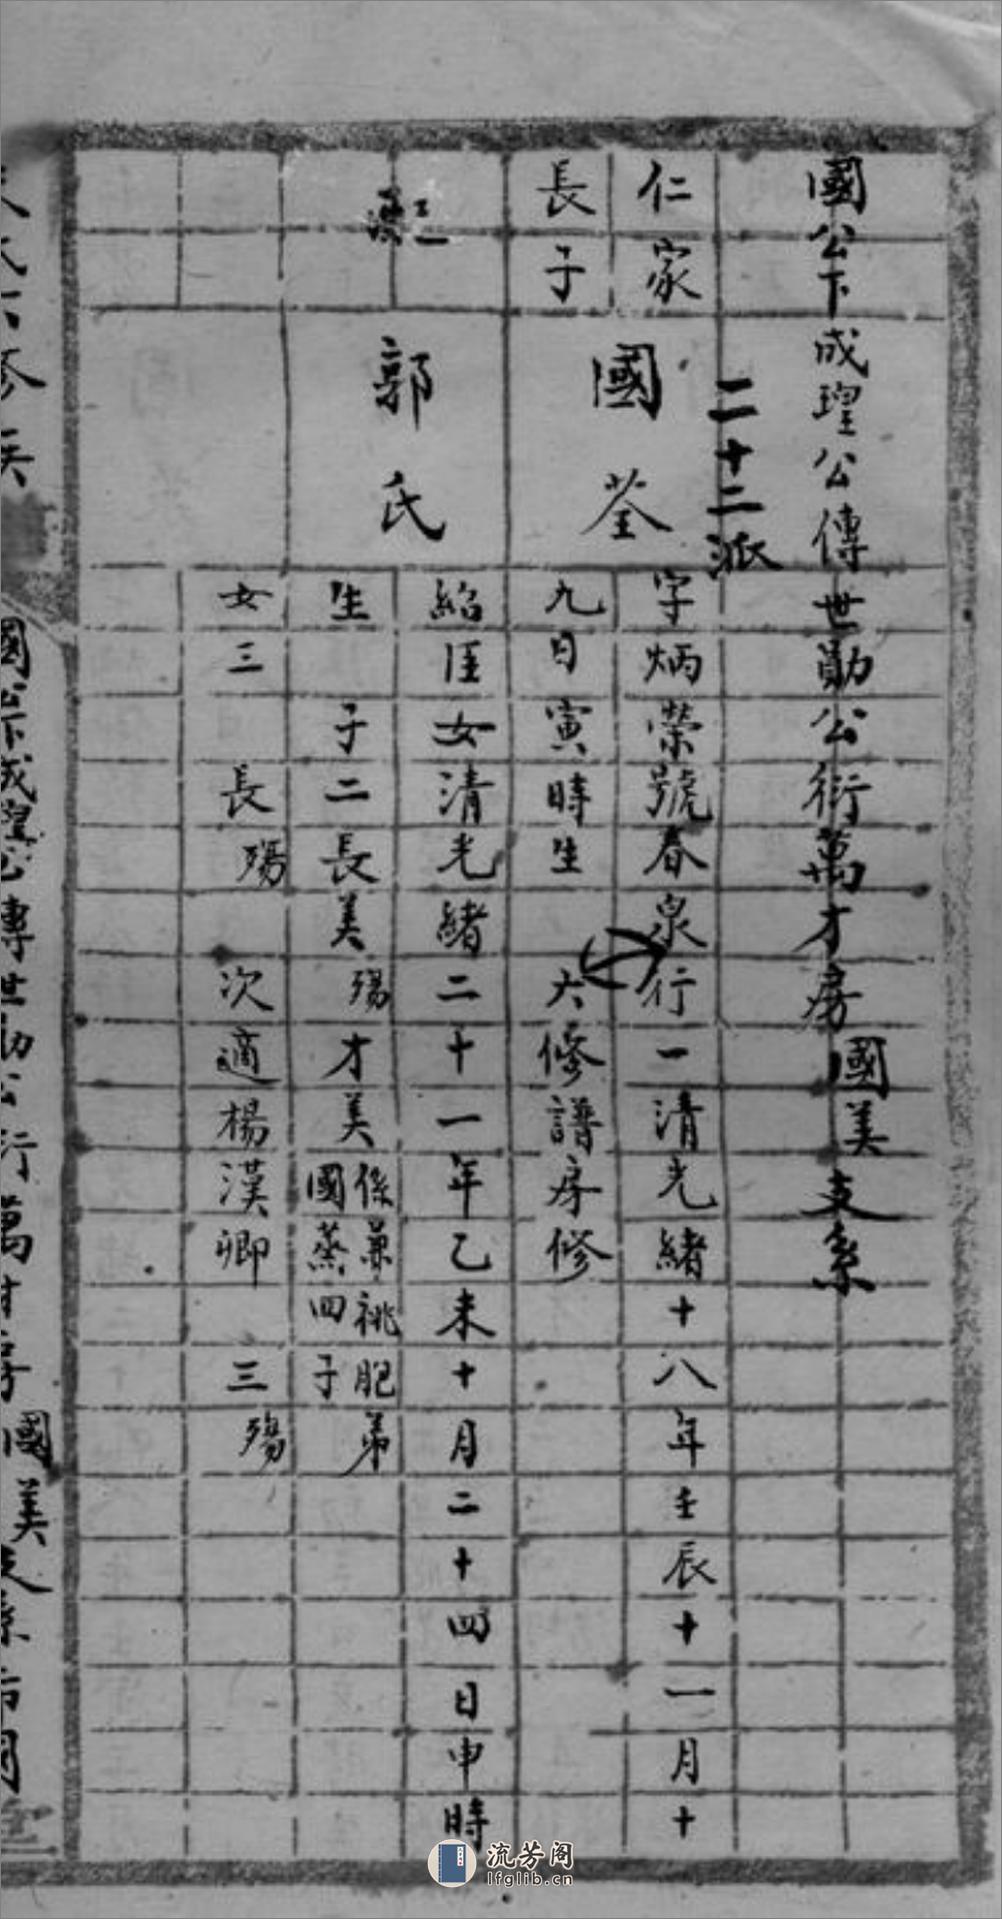 國公下成瑝公傳世勛公衍萬才房國美支系
二十二派
仁家
長子
國荃
字炳榮號春泉行一清光緒十八年壬辰十一月十
九日寅時生 六修譜房修
郭氏
紹匡女清光緒二十一年乙未十月二十四日申時
生 子二長美殤 才美係兼祧胞弟國蒸四子
女三 長殤 次適楊漢卿 三殤
國公下成瑝公傳世勛公衍萬才房國美支系
流芳阁
lfglib.cn